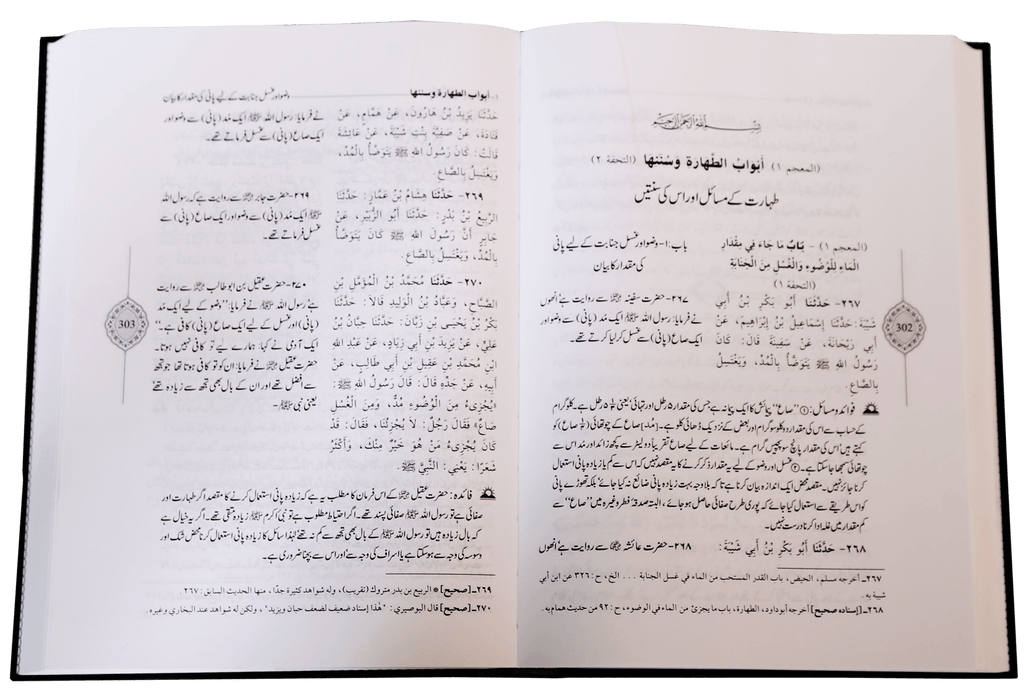 (المعجم ١) أَبْوَابُ الطَّهَارَةِ وَسُنَنِهَا (التحفة ٢)
طہارت کے مسائل اور اس کی سنتیں
(المعجم ١) - بَابُ مَا جَاءَ فِي مِقْدَارِ
الْمَاءِ لِلْوُضُوءِ وَالْغُسْلِ مِنَ الْجَنَابَةِ
(التحفة ١)
باب:١- وضو اور غسل جنابت کے لیے پانی
کی مقدار کا بیان
٢٦٧- حَدَّثَنَا أَبُو بَكْرِ بْنُ أَبِي
شَيْبَةَ: حَدَّثَنَا إِسْمَاعِيلُ بْنُ إِبْرَاهِيمَ، عَنْ
أَبِي رَيْحَانَةَ، عَنْ سَفِينَةَ قَالَ: كَانَ
رَسُولُ اللهِ ﷺ يَتَوَضَّأُ بِالْمُدِّ، وَيَغْتَسِلُ
بِالصَّاعِ.
٢٦٧- حضرت سفینہ ؓ سے روایت ہے انھوں
نے فرمایا: رسول اللہ ﷺ ایک مُد (پانی) سے وضو اور
ایک صاع (پانی) سے غسل کر لیا کرتے تھے۔
فوائد و مسائل: ① ’’صاع‘‘ پیمائش کا ایک پیمانہ ہے جس کی مقدار ۵ رطل اور تہائی یعنی رطل ہے۔ کلوگرام
کے حساب سے اس کی مقدار دو کلو سو گرام اور بعض کے نزدیک ڈھائی کلو ہے۔ [مُد] صاع کے چوتھائی (¼ صاع) کو
کہتے ہیں اس کی مقدار پانچ سو پچیس گرام ہے۔ مائعات کے لیے صاع تقریباً دو لیٹر سے کچھ زائد اور مد اس سے
چوتھائی سمجھا جا سکتا ہے۔ ② غسل اور وضو کے لیے یہ مقدار ذکر کرنے کا یہ مقصد نہیں کہ اس سے کم یا زیادہ پانی استعمال
کرنا جائز نہیں۔ مقصد محض ایک اندازہ بیان کرنا ہے تاکہ بلاوجہ بہت زیادہ پانی ضائع نہ کیا جائے بلکہ تھوڑے پانی
کو اس طریقے سے استعمال کیا جائے کہ پوری طرح صفائی حاصل ہو جائے، البتہ صدقۂ فطر وغیرہ میں ’’صاع‘‘ سے
کم مقدار میں غلہ ادا کرنا درست نہیں۔
٢٦٨- حَدَّثَنَا أَبُو بَكْرِ بْنُ أَبِي شَيْبَةَ:
٢٦٨- حضرت عائشہ ؓ سے روایت ہے انھوں
٢٦٧- أخرجه مسلم، الحيض، باب القدر المستحب من الماء في غسل الجنابة ... الخ، ح: ٣٢٦ عن ابن أبي
شيبة به.
٢٦٨- [إسناده صحيح] أخرجه أبوداود، الطهارة، باب ما يجزئ من الماء في الوضوء، ح: ٩٢ من حديث همام به.
302
أبواب الطهارة وسننها
وضو اور غسل جنابت کے لیے پانی کی مقدار کا بیان
حَدَّثَنَا يَزِيدُ بْنُ هَارُونَ، عَنْ هَمَّامٍ، عَنْ
قَتَادَةَ، عَنْ صَفِيَّةَ بِنْتِ شَيْبَةَ، عَنْ عَائِشَةَ
قَالَتْ: كَانَ رَسُولُ اللهِ ﷺ يَتَوَضَّأُ بِالْمُدِّ،
وَيَغْتَسِلُ بِالصَّاعِ.
نے فرمایا: رسول اللہ ﷺ ایک مُد (پانی) سے وضو اور
ایک صاع (پانی) سے غسل فرماتے تھے۔
٢٦٩- حَدَّثَنَا هِشَامُ بْنُ عَمَّارٍ: حَدَّثَنَا
الرَّبِيعُ بْنُ بَدْرٍ: حَدَّثَنَا أَبُو الزُّبَيْرِ، عَنْ
جَابِرٍ أَنَّ رَسُولَ اللهِ ﷺ كَانَ يَتَوَضَّأُ
بِالْمُدِّ، وَيَغْتَسِلُ بِالصَّاعِ.
٢٦٩- حضرت جابر ؓ سے روایت ہے کہ رسول اللہ
ﷺ ایک مُد (پانی) سے وضو اور ایک صاع (پانی) سے
غسل فرماتے تھے۔
٢٧٠- حَدَّثَنَا مُحَمَّدُ بْنُ الْمُؤَمَّلِ بْنِ
الصَّبَّاحِ، وَعَبَّادُ بْنُ الْوَلِيدِ قَالَا: حَدَّثَنَا
بَكْرُ بْنُ يَحْيَى بْنِ زَبَّانَ: حَدَّثَنَا حِبَّانُ بْنُ
عَلِيٍّ، عَنْ يَزِيدَ بْنِ أَبِي زِيَادٍ، عَنْ عَبْدِ اللهِ
ابْنِ مُحَمَّدِ بْنِ عَقِيلِ بْنِ أَبِي طَالِبٍ، عَنْ
أَبِيهِ، عَنْ جَدِّهِ قَالَ: قَالَ رَسُولُ اللهِ ﷺ:
«يُجْزِىءُ مِنَ الْوُضُوءِ مُدٌّ، وَمِنَ الْغُسْلِ
صَاعٌ» فَقَالَ رَجُلٌ: لَا يُجْزِئُنَا، فَقَالَ: قَدْ
كَانَ يُجْزِىءُ مَنْ هُوَ خَيْرٌ مِنْكَ، وَأَكْثَرُ
شَعَرًا: يَعْنِي: النَّبِيَّ ﷺ.
٢٧٠- حضرت عقیل بن ابو طالب ؓ سے روایت
ہے رسول اللہ ﷺ نے فرمایا: ’’وضو کے لیے ایک مُد
(پانی) اور غسل کے لیے ایک صاع (پانی) کافی ہے۔‘‘
ایک آدمی نے کہا: ہمارے لیے تو کافی نہیں ہوتا۔
حضرت عقیل ؓ نے فرمایا: ان کو تو کافی ہوتا تھا جو تجھ
سے افضل تھے اور ان کے بال بھی تجھ سے زیادہ تھے
یعنی نبی ﷺ۔
فائدہ: حضرت عقیل ؓ کے اس فرمان کا مطلب یہ ہے کہ زیادہ پانی استعمال کرنے کا مقصد اگر طہارت اور
صفائی ہے تو رسول اللہ ﷺ صفائی پسند تھے۔ اگر احتیاط مطلوب ہے تو نبی اکرم ﷺ زیادہ متقی تھے۔ اگر یہ خیال ہے
کہ بال زیادہ ہیں تو رسول اللہ ﷺ کے بال بھی تجھ سے کم نہ تھے لہٰذا سائل کا زیادہ پانی استعمال کرنا محض شک اور
وسوسہ کی وجہ سے ہو سکتا ہے یا اسراف کی وجہ سے اور اس سے بچنا ضروری ہے۔
٢٦٩- [صحيح] * الربيع بن بدر متروك (تقريب)، وله شواهد كثيرة جدًا، منها الحديث السابق: ٢٦٧.
٢٧٠- [صحيح] قال البوصيري: "هٰذا إسناد ضعيف لضعف حبان ويزيد"، ولكن له شواهد عند البخاري وغيره.
303